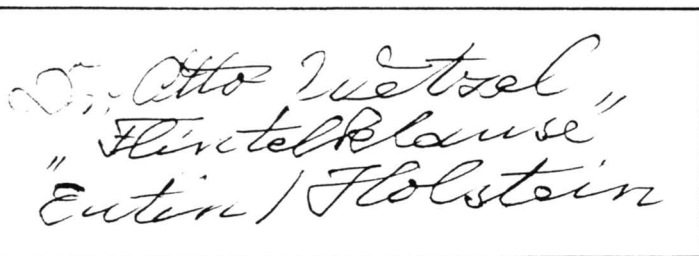 Dr. Otto Wetzel
„Flintelklause“
Eutin / Holstein